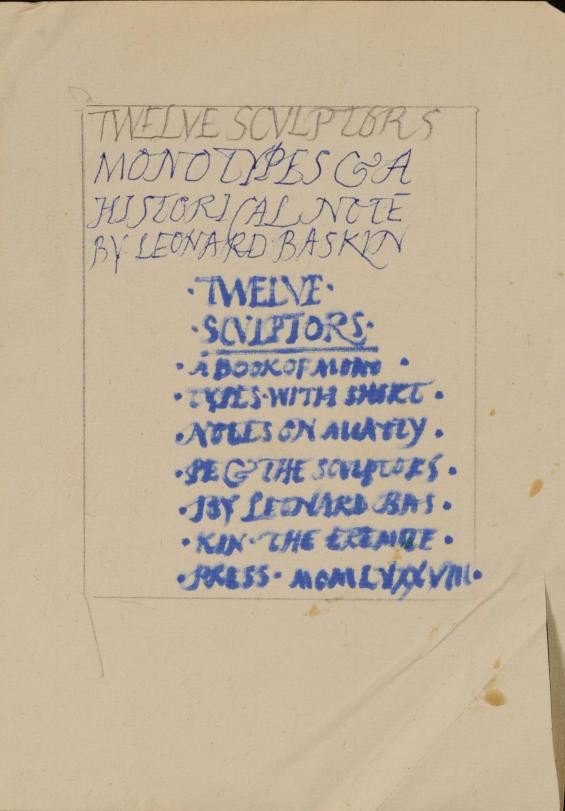 TWELVE SCVLPTORS
MONOTYPES & A
HISTORICAL NOTE
BY LEONARD BASKIN
·TWELVE·
·SCVLPTORS·
·A BOOK OF MONO·
·TYPES·WITH SHORT·
·NOTES ON
·PE & THE SCVLPTORS·
·BY LEONARD BAS·
·KIN·THE EREMITE·
·PRESS· MCMLXXXVIII·